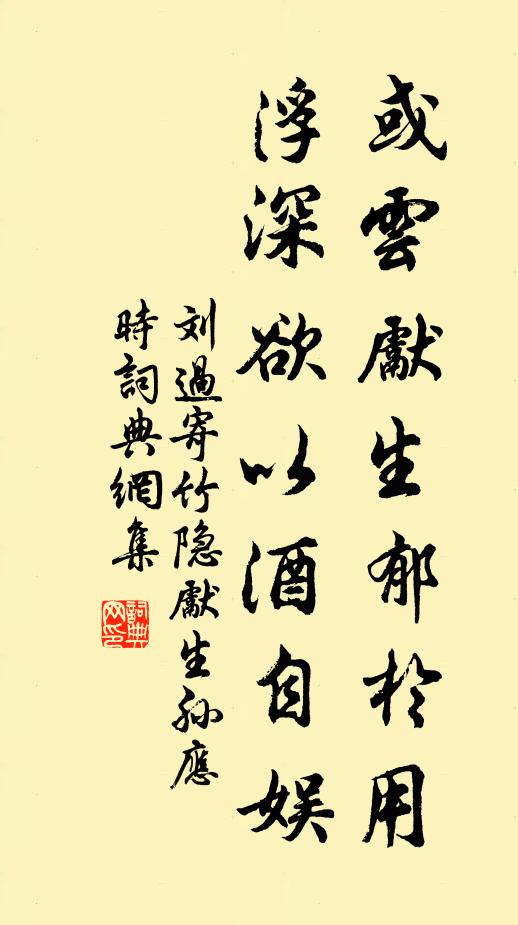 或雲獻生郁於用
浮深欲以酒自娛
刘過寄竹隐獻生孙應
時詞典網集
詞典網印